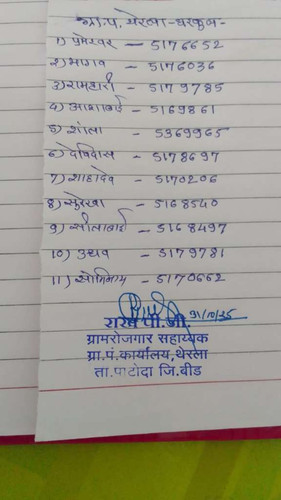 ग्रा.प. थेरला - घरकुल -
१) प्रमेश्वर — 5176652
२) भागवत — 5176036
३) रामहारी — 5179785
४) आशाबाई — 5169861
५) शीला — 5369965
६) देविदास — 5178697
7) शहादेव — 5170206
8) सुरेखा — 5168540
9) शीलाबाई — 5168497
10) उध्दव — 5179781
11) सोमिनाथ — 5170662
31/10/25
राख पी.जी.
ग्रामरोजगार सहाय्यक
ग्रा.पं.कार्यालय,थेरला
ता.पाटोदा जि.बीड